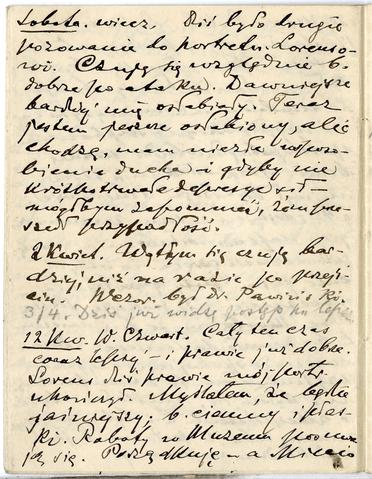 Sobota. wiecz. Dziś było drugie
pozowanie do portretu. Lorensowi.
Czuję się względnie b.
dobrze po ataku. Dawniejsze
bardziej mię osłabiały. Teraz
jestem jeszcze osłabiony, ale
chodzę, mam niezłe usposobienie
ducha i gdyby nie
krótkotrwałe depresye
mógłbym zapomnieć, żem przeszedł
przypadłość.
2 Kwiet. Wątłym się czuję bardziej
niż na razie po przejściu.
Wczor. był dr. Pawiński.
3/4. Dziś już widzę postęp ku lepsz.
12 Kw. W. Czwart. Cały ten czas
coraz lepiej – i prawie już dobrze.
Lorens dziś prawie mój portr.
ukończył. Myślałem, że będzie
jaśniejszy; b. ciemny i płaski.
Roboty w Muzeum posuwają
się. Porządkuję – a